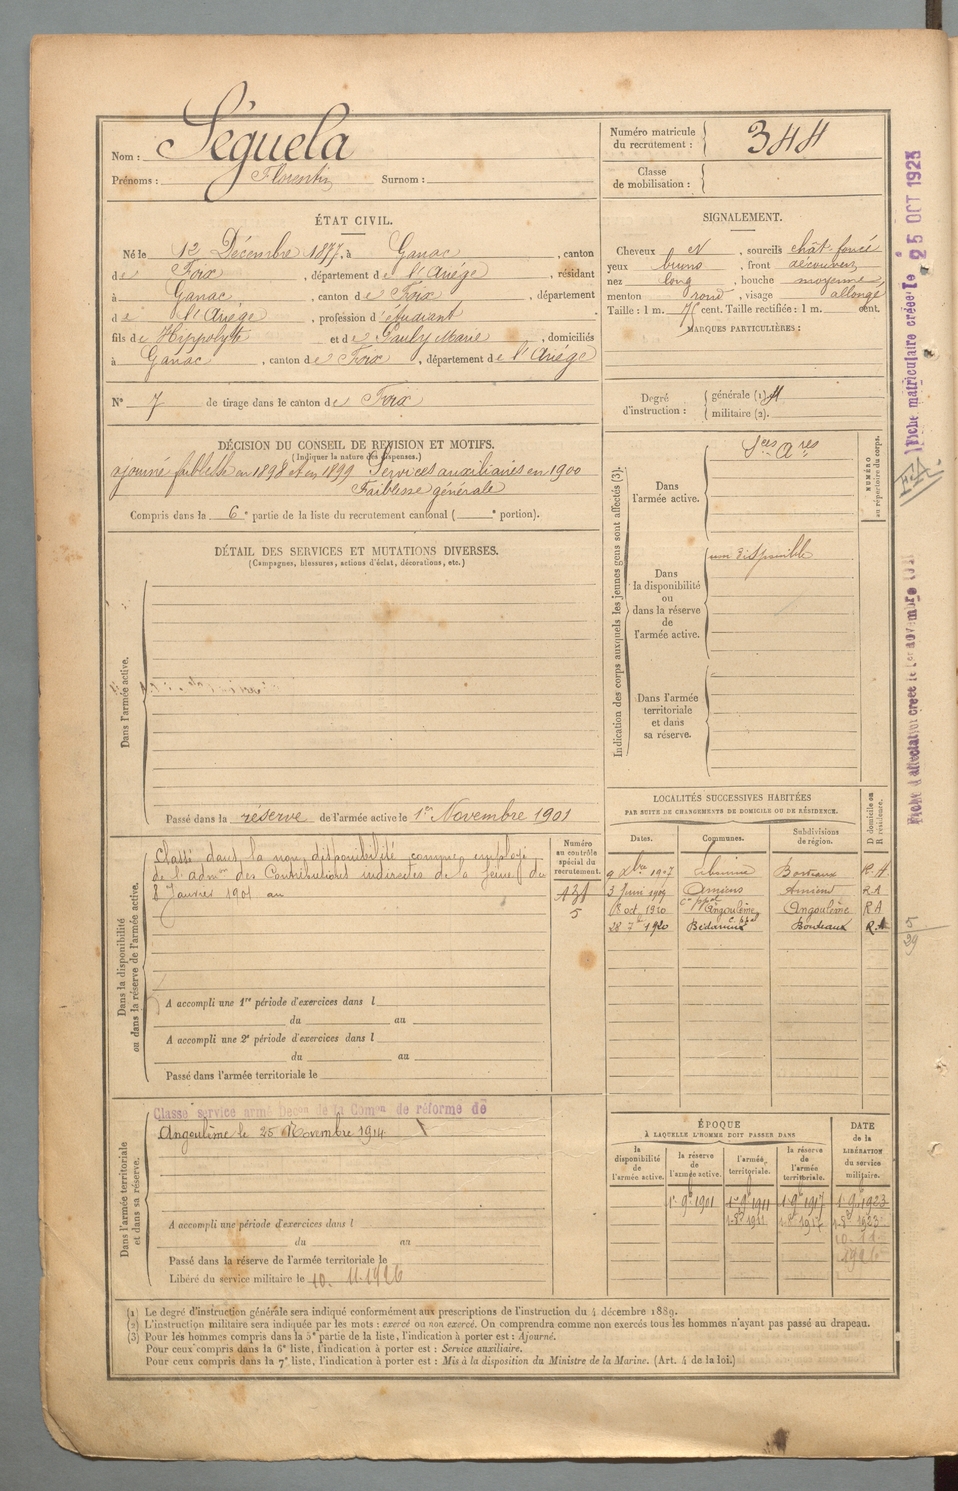 Nom : Séguela
Prénoms : Florentin Surnom :
Numéro matricule du recrutement : 344
Classe de mobilisation :
ÉTAT CIVIL.
Né le 12 Décembre 1877, à Ganac, canton
de Foix, département de l'Ariége, résidant
à Ganac, canton de Foix, département
de l'Ariége, profession d'étudiant
fils de Hippolyte et de Pauly Marie, domiciliés
à Ganac, canton de Foix, département de l'Ariége
N° 7 de tirage dans le canton de Foix
SIGNALEMENT.
Cheveux N, sourcils chât. foncé
yeux bruns, front découvert
nez long, bouche moyenne
menton rond, visage allongé
Taille : 1 m. cent. Taille rectifiée : 1 m. cent.
MARQUES PARTICULIÈRES :
Degré d'instruction : générale (1)
militaire (2).
DÉCISION DU CONSEIL DE REVISION ET MOTIFS.
(Indiquer la nature des dispenses.)
ajourné faiblesse en 1898 et en 1899 Services auxiliaires en 1900
Faiblesse générale
Compris dans la 6e partie de la liste du recrutement cantonal ( e portion).
DÉTAIL DES SERVICES ET MUTATIONS DIVERSES.
(Campagnes, blessures, actions d'éclat, décorations, etc.)
Dans l'armée active.
Passé dans la réserve de l'armée active le 1er Novembre 1901
Indication des corps auxquels les jeunes gens sont affectés (3).
Dans l'armée active.
Sces Ares
NUMÉRO au répertoire du corps.
Dans la disponibilité ou dans la réserve de l'armée active.
non disponible
Dans l'armée territoriale et dans sa réserve.
Dans la disponibilité ou dans la réserve de l'armée active.
Classé dans la non disponibilité comme employé
de l'admon des Contributions indirectes de la Seine du
8 Janvier 1901 au
Numéro au contrôle spécial du recrutement.
A accompli une 1re période d'exercices dans l
du au
A accompli une 2e période d'exercices dans l
du au
Passé dans l'armée territoriale le
LOCALITÉS SUCCESSIVES HABITÉES
PAR SUITE DE CHANGEMENTS DE DOMICILE OU DE RÉSIDENCE.
Dates. Communes. Subdivisions de région. D domicile ou R résidence.
9 Xbre 1907 Bordeaux
3 Juin 1909 Amiens Amiens RA
18 oct. 1910 Angoulême Angoulême RA
1920 Bordeaux R.A
Dans l'armée territoriale et dans sa réserve.
Classé service armé Décon de la Comon de réforme de
Angoulême le 25 Novembre 1914
A accompli une période d'exercices dans l
du au
Passé dans la réserve de l'armée territoriale le
Libéré du service militaire le 10. 11. 1926
ÉPOQUE
À LAQUELLE L'HOMME DOIT PASSER DANS
la disponibilité de l'armée active.
la réserve de l'armée active.
l'armée territoriale.
la réserve de l'armée territoriale.
DATE de la LIBÉRATION du service militaire.
1r 9b 1901 1r 9b 1911 1r 9b 1917 1r 9b 1923
10-11-
1926
(1) Le degré d'instruction générale sera indiqué conformément aux prescriptions de l'instruction du 4 décembre 1889.
(2) L'instruction militaire sera indiquée par les mots : exercé ou non exercé. On comprendra comme non exercés tous les hommes n'ayant pas passé au drapeau.
(3) Pour les hommes compris dans la 5e partie de la liste, l'indication à porter est : Ajourné.
Pour ceux compris dans la 6e liste, l'indication à porter est : Service auxiliaire.
Pour ceux compris dans la 7e liste, l'indication à porter est : Mis à la disposition du Ministre de la Marine. (Art. 4 de la loi.)
Fiche matriculaire créée le 25 OCT 1923
5
29